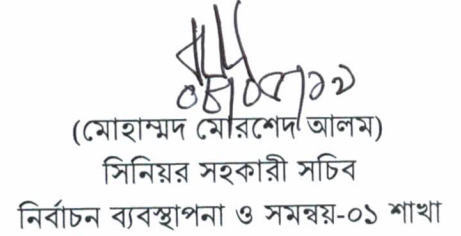 (মোহাম্মদ মোরশেদ আলম)
সিনিয়র সহকারী সচিব
নির্বাচন ব্যবস্থাপনা ও সমন্বয়-০১ শাখা